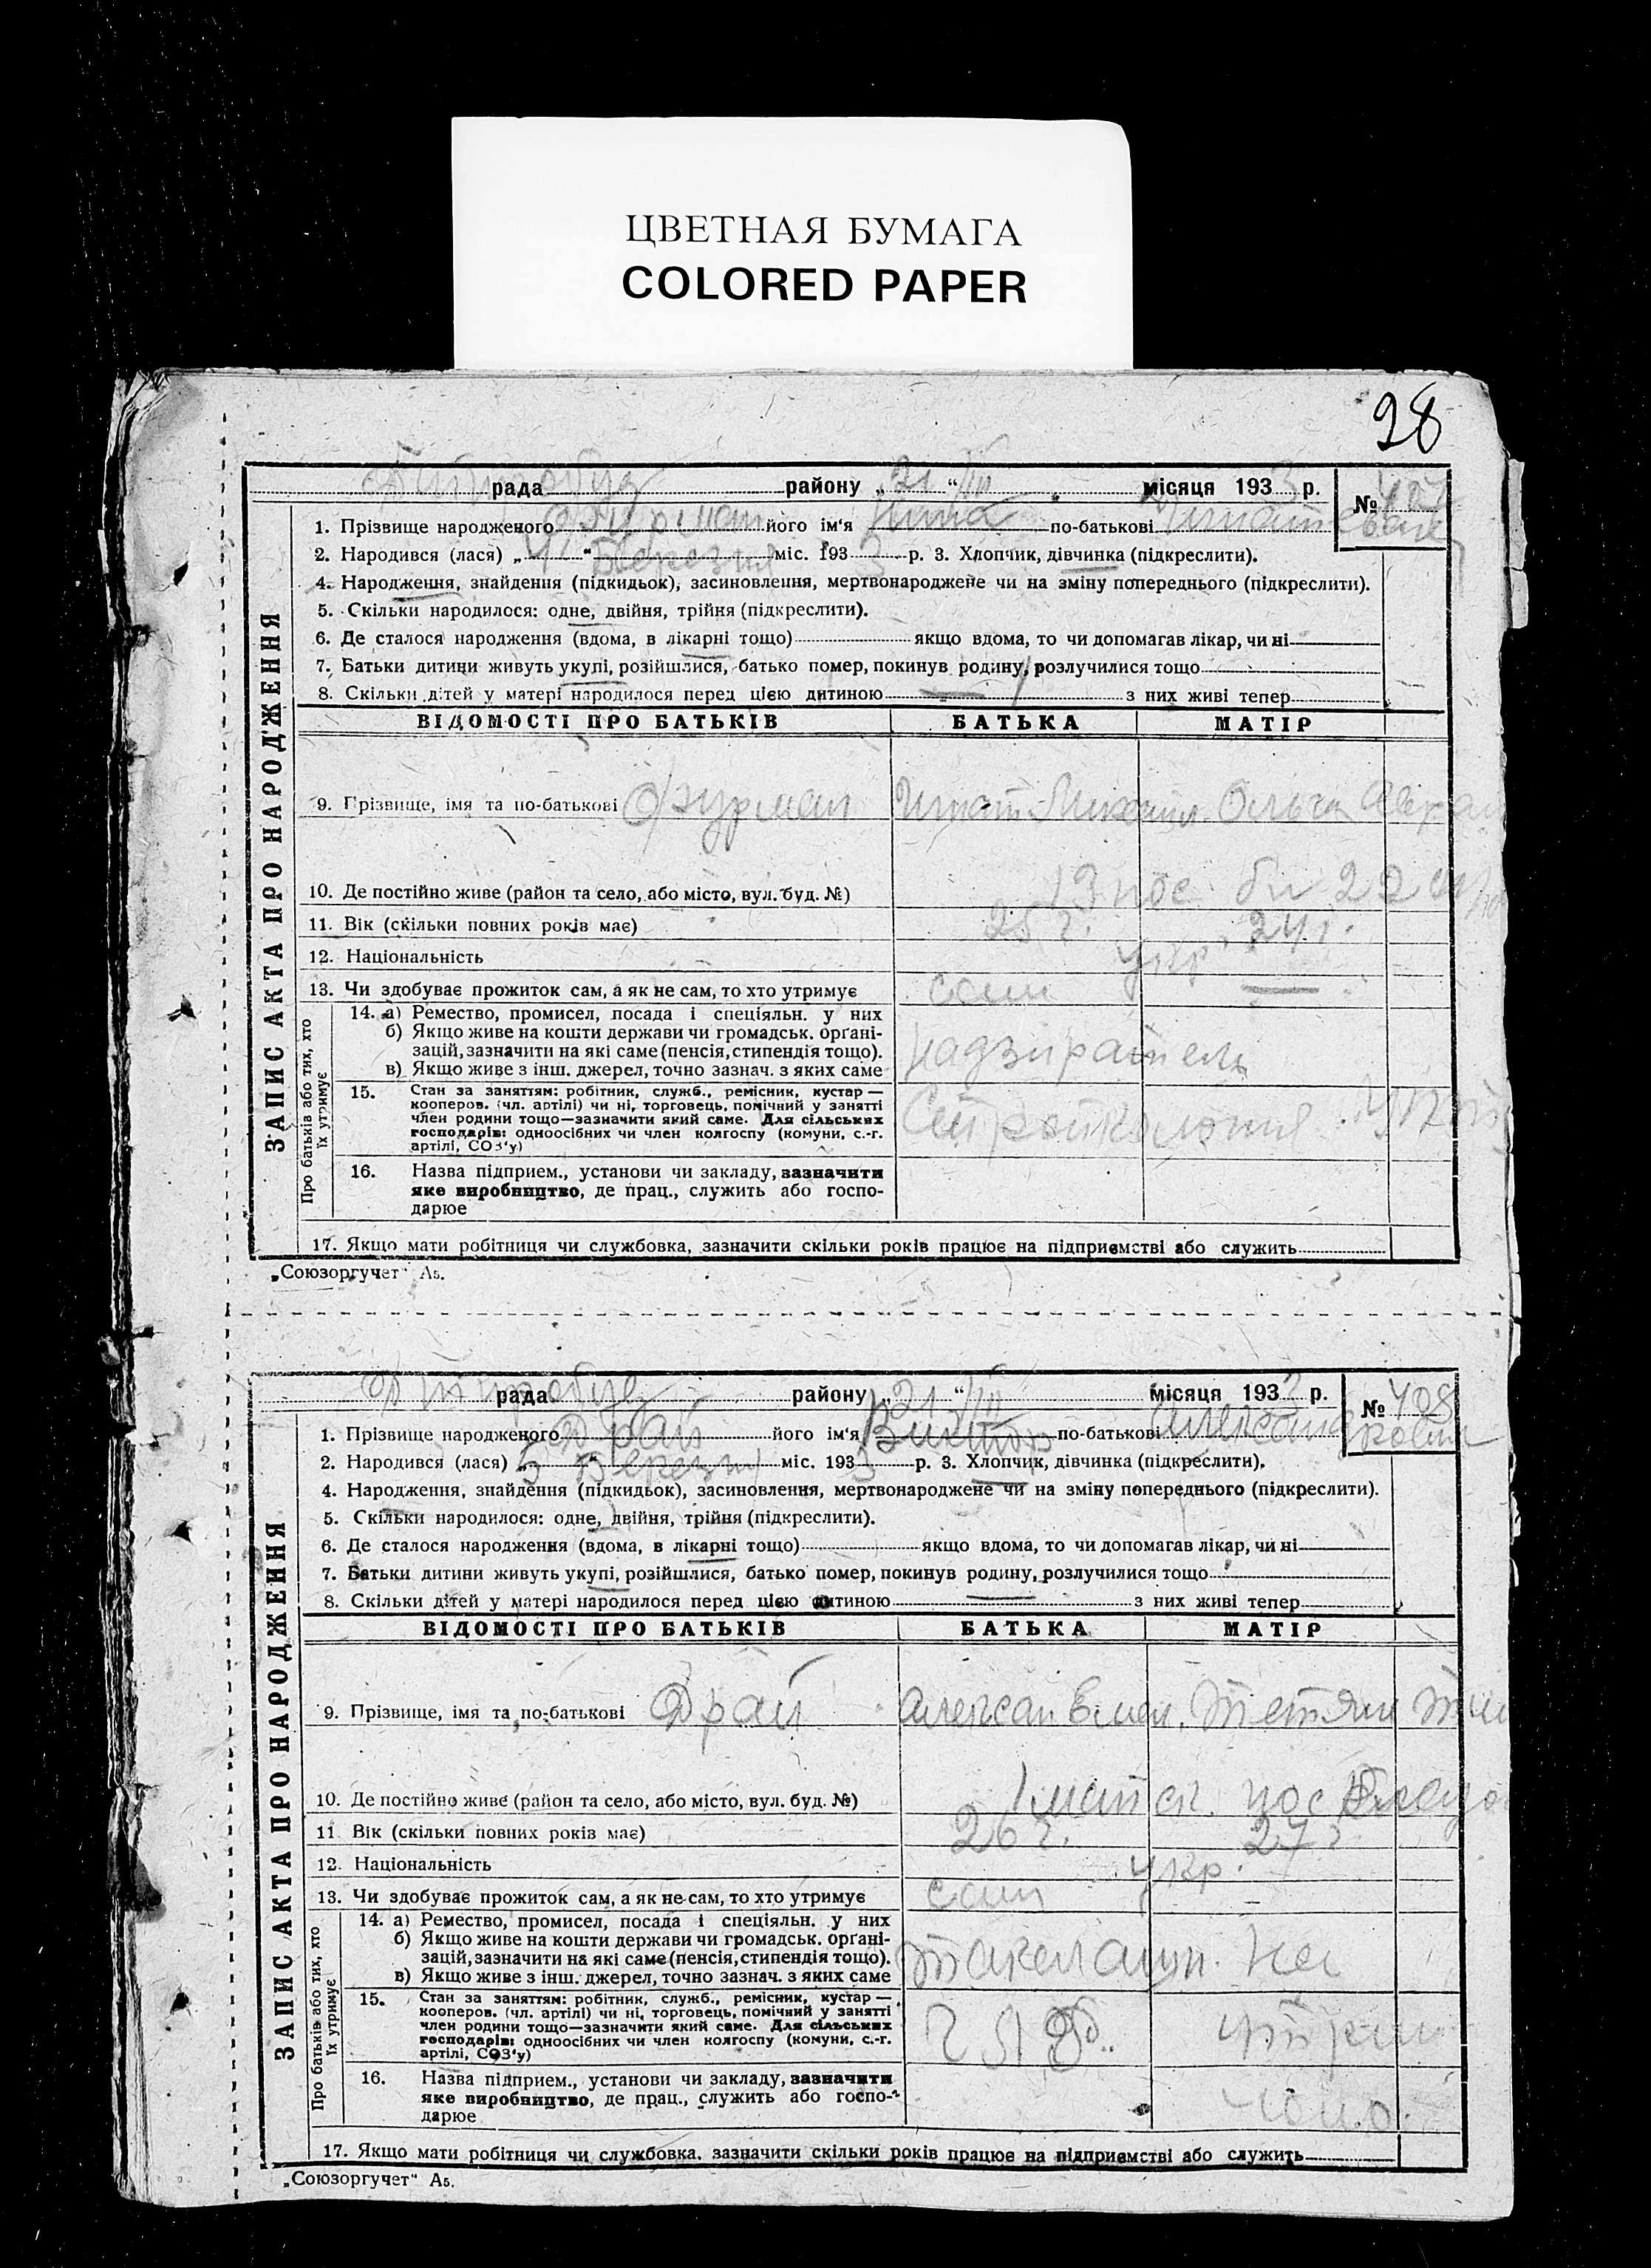 ЦВЕТНАЯ БУМАГА
COLORED PAPER
28
рада району „ 21 “ III місяця 1933 р.
№ 407
1. Прізвище народженого Фурман його ім'я Нина по-батькові
2. Народився (лася) „ 4 “ Березня міс. 1933 р. 3. Хлопчик, дівчинка (підкреслити).
4. Народження, знайдення (підкидьок), засиновлення, мертвонароджене чи на зміну попереднього (підкреслити).
5. Скільки народилося: одне, двійня, трійня (підкреслити).
6. Де сталося народження (вдома, в лікарні тощо) якщо вдома, то чи допомагав лікар, чи ні
7. Батьки дитини живуть укупі, розійшлися, батько помер, покинув родину, розлучилися тощо
8. Скільки дітей у матері народилося перед цією дитиною — з них живі тепер
ЗАПИС АКТА ПРО НАРОДЖЕННЯ
ВІДОМОСТІ ПРО БАТЬКІВ БАТЬКА МАТІР
9. Прізвище, імя та по-батькові Фурман Игнат Михайл. Ольга
10. Де постійно живе (район та село, або місто, вул. буд. №) пос. 22
11. Вік (скільки повних років має) 25 г. 24 г.
12. Національність укр
13. Чи здобуває прожиток сам, а як не сам, то хто утримує сам —
Про батьків або тих, хто їх утримує
14. а) Ремество, промисел, посада і спеціяльн. у них
б) Якщо живе на кошти держави чи громадськ. органі-
зацій, зазначити на які саме (пенсія, стипендія тощо).
в) Якщо живе з інш. джерел, точно зазнач. з яких саме
надзиратель
15. Стан за заняттям: робітник, служб., ремісник, кустар —
кооперов. (чл. артілі) чи ні, торговець, помічний у занятті
член родини тощо—зазначити який саме. Для сільських
господарів: одноосібних чи член колгоспу (комуни, с.-г.
артілі, СОЗ'у)
16. Назва підприєм., установи чи закладу, зазначити
яке виробництво, де прац., служить або госпо-
дарює
17. Якщо мати робітниця чи службовка, зазначити скільки років працює на підприємстві або служить
„Союзоргучет“ А5.
рада району „ 21 “ III місяця 193 р.
№ 408
1. Прізвище народженого Драй його ім'я Виктор по-батькові Александрович
2. Народився (лася) „ 5 “ Березня міс. 1933 р. 3. Хлопчик, дівчинка (підкреслити).
4. Народження, знайдення (підкидьок), засиновлення, мертвонароджене чи на зміну попереднього (підкреслити).
5. Скільки народилося: одне, двійня, трійня (підкреслити).
6. Де сталося народження (вдома, в лікарні тощо) якщо вдома, то чи допомагав лікар, чи ні
7. Батьки дитини живуть укупі, розійшлися, батько помер, покинув родину, розлучилися тощо
8. Скільки дітей у матері народилося перед цією дитиною — з них живі тепер
ЗАПИС АКТА ПРО НАРОДЖЕННЯ
ВІДОМОСТІ ПРО БАТЬКІВ БАТЬКА МАТІР
9. Прізвище, імя та по-батькові Драй Алексан Емел. Тетяни
10. Де постійно живе (район та село, або місто, вул. буд. №) пос
11. Вік (скільки повних років має) 26 г. 27 г.
12. Національність укр.
13. Чи здобуває прожиток сам, а як не сам, то хто утримує сам —
Про батьків або тих, хто їх утримує
14. а) Ремество, промисел, посада і спеціяльн. у них
б) Якщо живе на кошти держави чи громадськ. органі-
зацій, зазначити на які саме (пенсія, стипендія тощо).
в) Якщо живе з інш. джерел, точно зазнач. з яких саме
15. Стан за заняттям: робітник, служб., ремісник, кустар —
кооперов. (чл. артілі) чи ні, торговець, помічний у занятті
член родини тощо—зазначити який саме. Для сільських
господарів: одноосібних чи член колгоспу (комуни, с.-г.
артілі, СОЗ'у)
16. Назва підприєм., установи чи закладу, зазначити
яке виробництво, де прац., служить або госпо-
дарює
17. Якщо мати робітниця чи службовка, зазначити скільки років працює на підприємстві або служить
„Союзоргучет“ А5.